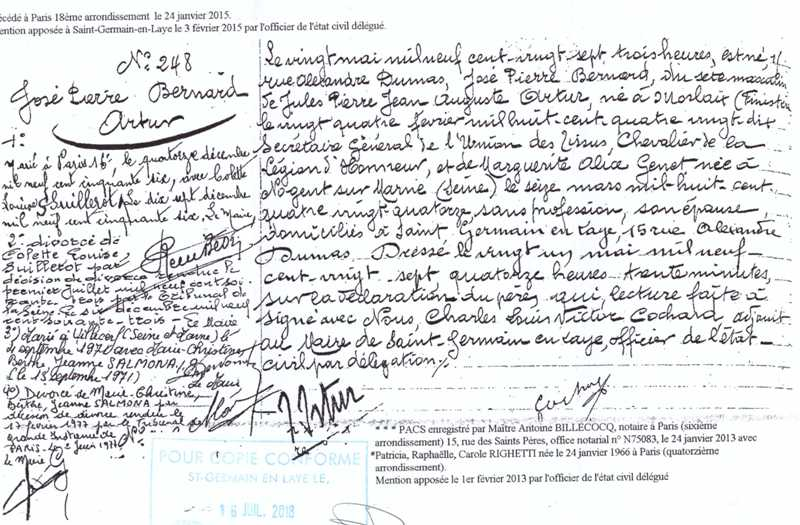 écédé à Paris 18ème arrondissement le 24 janvier 2015.
ention apposée à Saint-Germain-en-Laye le 3 février 2015 par l'officier de l'état civil délégué.
N° 248
José Pierre Bernard
Artur
1°
Marié à Paris 16°, le quatorze décembre
mil neuf cent cinquante six, avec Colette
Louise Guillerot. Le dix sept décembre
mil neuf cent cinquante six. Le Maire
2° divorcé de
Colette Louise
Guillerot par
décision de divorce rendue le
premier juillet mil neuf cent soi-
xante trois par le Tribunal de
la Seine. Le six décembre mil neuf
cent soixante-trois. Le Maire
3°) Marié à Villecerf (Seine et Marne) le
4 septembre 1971 avec Marie-Christine,
Berthe, Jeanne SALMONA
(Le 13 septembre 1971)
le Maire
Divorcé de Marie-Christine,
Berthe, Jeanne SALMONA par
décision de divorce rendue le
17 février 1977 par le Tribunal de
grande Instance de
PARIS. Le 2 juin 1977
le Maire
Le vingt mai mil neuf cent vingt sept trois heures, est né, 1
rue Alexandre Dumas, José Pierre Bernard, du sexe masculin
de Jules Pierre Jean Auguste Artur, né à Morlaix (Finistère
le vingt quatre février mil huit cent quatre vingt dix
Secrétaire Général de l'Union des Tissus, Chevalier de la
Légion d'Honneur, et de Marguerite Alice Genet née à
Nogent sur Marne (Seine) le seize mars mil-huit-cent
quatre vingt-quatorze, sans profession, son épouse
domiciliés à Saint Germain en Laye, 15 rue Alexandre
Dumas. Dressé le vingt un mai mil neuf
cent-vingt-sept quatorze heures trente minutes,
sur la déclaration du père, qui, lecture faite à
signé avec Nous, Charles Louis Victor Cochard adjoint
au Maire de Saint-Germain en Laye, officier de l'état-
civil par délégation.
J. Artur
Cochard
*** PACS enregistré par Maître Antoine BILLECOCQ, notaire à Paris (sixième
arrondissement) 15, rue des Saints Pères, office notarial n° N75083, le 24 janvier 2013 avec
*Patricia, Raphaëlle, Carole RIGHETTI née le 24 janvier 1966 à Paris (quatorzième
arrondissement).
Mention apposée le 1er février 2013 par l'officier de l'état civil délégué
POUR COPIE CONFORME
ST-GERMAIN EN LAYE LE,
16 JUIL. 2018